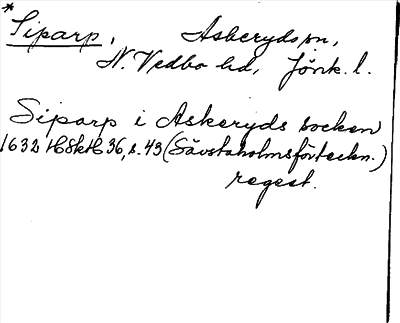 *Siparp, Askeryds sn,
N. Vedbo hd, Jönk. l.
Siparp i Askeryds socken
1632 HSkH 36, s. 43 (Sävstaholmsförteckn.)
regest.